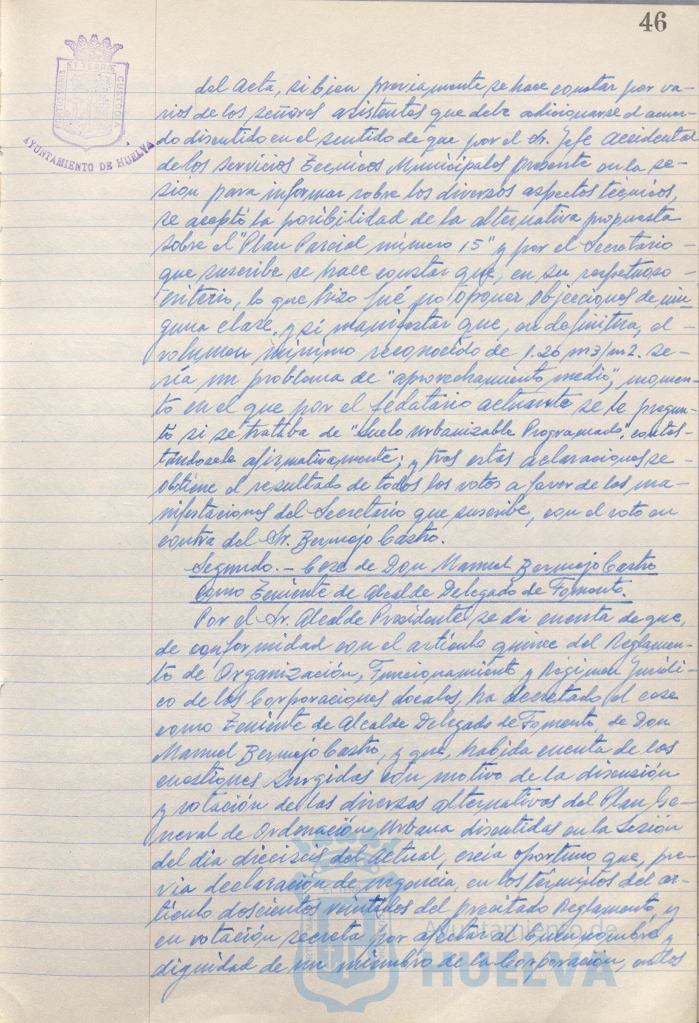 46
AYUNTAMIENTO DE HUELVA
del Acta, si bien previamente se hace constar por va-
rios de los señores asistentes que debe adicionarse el acuer-
do discutido en el sentido de que por el Sr. Jefe Accidental
de los Servicios Técnicos Municipales presente en la se-
sión para informar sobre los diversos aspectos técnicos,
se aceptó la posibilidad de la alternativa propuesta
sobre el "Plan Parcial número 15" y por el Secretario
que suscribe se hace constar que, en su respetuoso
criterio, lo que hizo fué no oponer objecciones de nin-
guna clase, y sí manifestar que, en definitiva, el
volumen mínimo reconocido de 1.26 m3/m2. se-
ría un problema de "aprovechamiento medio", momen-
to en el que por el fedatario actuante se le pregun-
tó si se trataba de "Suelo Urbanizable Programado", contes-
tándosele afirmativamente; y tras estas aclaraciones se
obtiene el resultado de todos los votos a favor de las ma-
nifestaciones del Secretario que suscribe, con el voto en
contra del Sr. Bermejo Castro.
Segundo.- Cese de Don Manuel Bermejo Castro
como Teniente de Alcalde Delegado de Fomento.
Por el Sr. Alcalde Presidente se da cuenta de que,
de conformidad con el artículo quince del Reglamen-
to de Organización, Funcionamiento y Régimen Jurídi-
co de las Corporaciones Locales, ha decretado el cese
como Teniente de Alcalde Delegado de Fomento de Don
Manuel Bermejo Castro, y que, habida cuenta de las
cuestiones surgidas con motivo de la discusión
y votación de las diversas alternativas del Plan Ge-
neral de Ordenación Urbana discutidas en la Sesión
del día dieciseis del actual, creía oportuno que, pre-
via declaración de urgencia, en los términos del ar-
tículo doscientos veintidós del precitado Reglamento y
en votación secreta por afectar al buen nombre y
dignidad de un miembro de la Corporación, antes
Ayuntamiento de
HUELVA